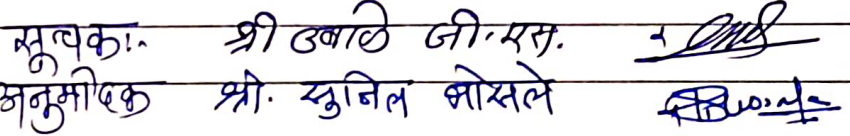 सूचक:- श्री उबाळे जी.एस.
अनुमोदक श्री. सुनिल भोसले